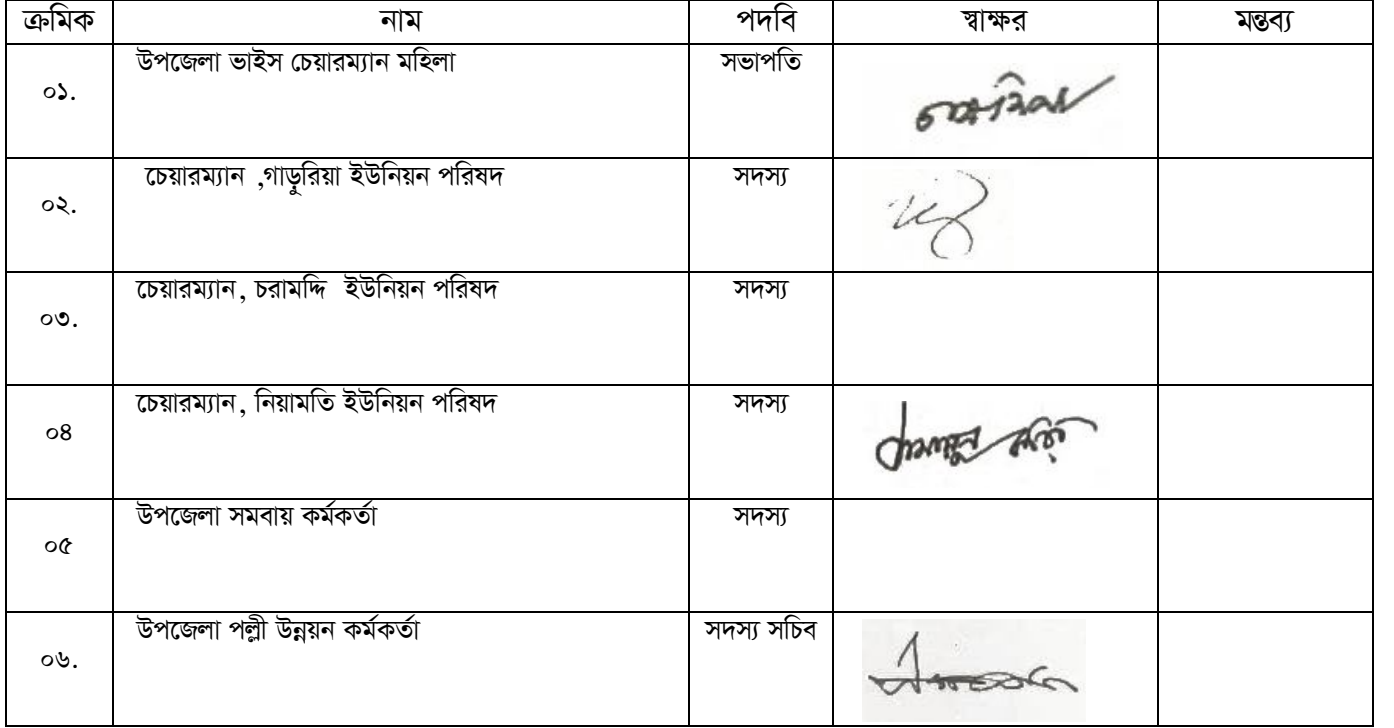 ক্রমিক নাম পদবি স্বাক্ষর মন্তব্য
০১. উপজেলা ভাইস চেয়ারম্যান মহিলা সভাপতি
০২. চেয়ারম্যান ,গাড়ুরিয়া ইউনিয়ন পরিষদ সদস্য
০৩. চেয়ারম্যান, চরামদ্দি ইউনিয়ন পরিষদ সদস্য
০৪ চেয়ারম্যান, নিয়ামতি ইউনিয়ন পরিষদ সদস্য
০৫ উপজেলা সমবায় কর্মকর্তা সদস্য
০৬. উপজেলা পল্লী উন্নয়ন কর্মকর্তা সদস্য সচিব